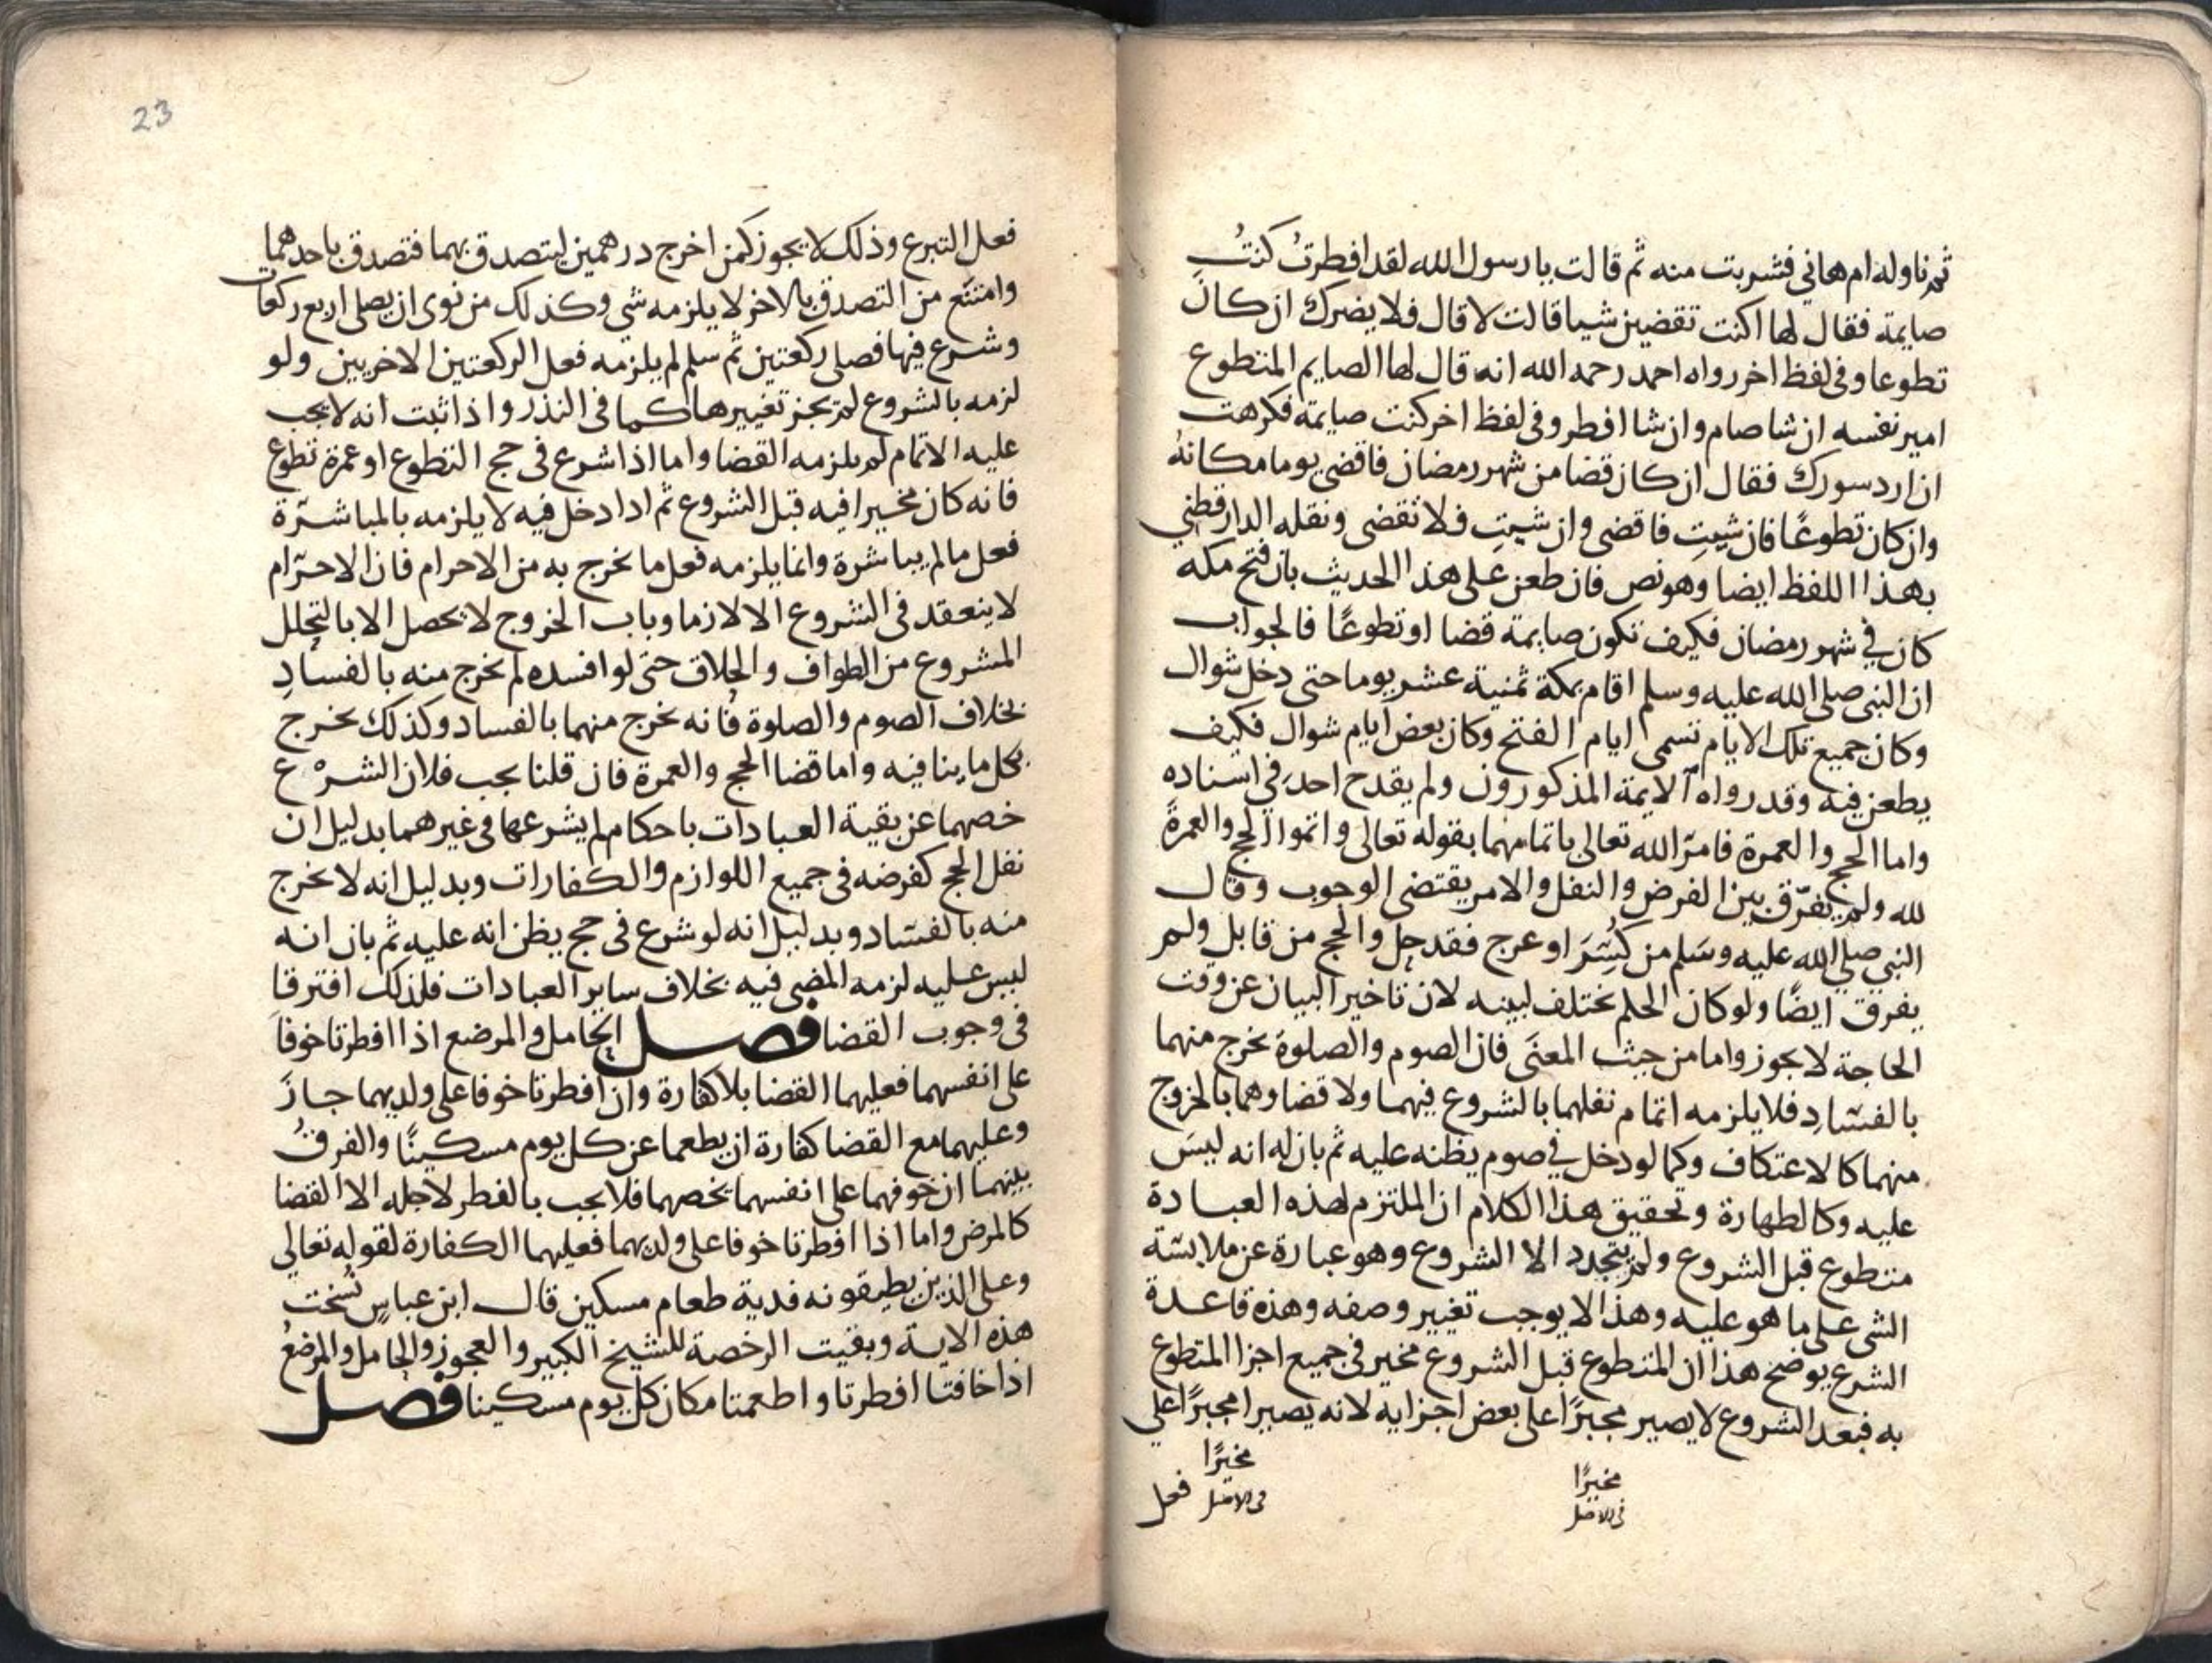 ثم ناوله ام هاني فشربت منه ثم قالت يا رسول الله لقد افطرتُ كنتُ
صايمة فقال لها اكنت تقضين شيا قالت لا قال فلا يضرك ان كان
تطوعا وفى لفظ اخر رواه احمد رحمه الله انه قال لها الصايم المتطوع
امير نفسه ان شا صام وان شا افطر وفى لفظ اخر كنت صايمة فكرهت
ان ارد سورك فقال ان كان قضا من شهر رمضان فاقضى يوما مكانه
وان كان تطوعًا فان شيتِ فاقضى وان شيتِ فلا تقضى ونقله الدارقطني
بهذا اللفظ ايضا وهو نص فان طعن على هذا الحديث بان فتح مكه
كان في شهر رمضان فكيف تكون صايمة قضا او تطوعًا فالجواب
ان النبى صلى الله عليه وسلم اقام بمكة ثمنية عشر يوما حتى دخل شوال
وكان جميع تلك الايام تسمى ايام الفتح وكان بعض ايام شوال فكيف
يطعن فيه وقد رواه الايمة المذكورون ولم يقدح احد في اسناده
واما الحج والعمرة فامر الله تعالى باتمامهما بقوله تعالى واتموا الحج والعمرة
لله ولم يفرّق بين الفرض والنفل والامر يقتضى الوجوب وقال
النبي صلي الله عليه وسلم من كُسِرَ او عرج فقد حل والحج من قابل ولم
يفرق ايضًا ولو كان الحكم يختلف لبينه لان تاخير البيان عن وقت
الحاجة لا يجوز واما من حيث المعنى فان الصوم والصلوة يخرج منهما
بالفسادِ فلا يلزمه اتمام نفلهما بالشروع فيهما ولا قضاوهما بالخروج
منهما كالاعتكاف وكما لو دخل في صوم يظنه عليه ثم بان له انه ليسَ
عليه وكالطهارة وتحقيق هذا الكلام ان الملتزم لهذه العبادة
متطوع قبل الشروع ولم يتجدد الا الشروع وهو عبارة عن ملابسة
الشى على ما هو عليه وهذا لا يوجب تغيير وصفه وهذه قاعدة
الشرع يوضح هذا ان المتطوع قبل الشروع مخير فى جميع اجزا المتطوع
به فبعد الشروع لا يصير مجبرًا على بعض اجزايه لانه يصير امجبرًا على
مخيرًا
فى الاصل
مخيرًا
فى الاصل
فعل
23
فعل التبرع وذلك لا يجوز كمن اخرج درهمين ليتصدق بهما فتصدق باحدهما
وامتنع من التصدق بالاخر لا يلزمه شي وكذلك من نوى ان يصلى اربع ركعات
وشرع فيها فصلى ركعتين ثم سلم لم يلزمه فعل الركعتين الاخريين ولو
لزمه بالشروع لم يجز تغييرها كما فى النذر واذا ثبت انه لا يجب
عليه الاتمام لم يلزمه القضا واما اذا شرع فى حج التطوع او عمرة تطوع
فانه كان مخيرا فيه قبل الشروع ثم اذا دخل فيه لا يلزمه بالمباشرة
فعل ما لم يباشرة وانما يلزمه فعل ما يخرج به من الاحرام فان الاحرام
لا ينعقد فى الشروع الا لازما وباب الخروج لا يحصل الا بالتحلل
المشروع من الطواف والحلاق حتى لو افسده لم يخرج منه بالفسادِ
بخلاف الصوم والصلوة فانه يخرج منهما بالفساد وكذلك يخرج
بكل ما ينافيه واما قضا الحج والعمرة فان قلنا يجب فلان الشرع
خصهما عن بقية العبادات باحكام لم يشرعها فى غيرهما بدليل ان
نفل الحج كفرضه فى جميع اللوازم والكفارات وبدليل انه لا يخرج
منه بالفساد وبدليل انه لو شرع فى حج يظن انه عليه ثم بان انه
ليس عليه لزمه المضى فيه بخلاف ساير العبادات فلذلك افترقا
فى وجوب القضا فصل الحامل والمرضع اذا افطرتا خوفا
على انفسهما فعليهما القضا بلا كفارة وان افطرتا خوفا على ولديهما جاز
وعليهما مع القضا كفارة ان يطعما عن كل يوم مسكينًا والفرقُ
بينهما ان خوفهما على انفسهما يخصهما فلا يجب بالفطر لاجله الا القضا
كالمرض واما اذا افطرتا خوفا على ولديهما فعليهما الكفارة لقوله تعالي
وعلى الذين يطيقونه فدية طعام مسكين قال ابن عباسٍ نُسخت
هذه الاية وبقيت الرخصة للشيخ الكبير والعجوز والحامل والمرضع
اذا خافتا افطرتا واطعمتا مكان كل يوم مسكينا فصل